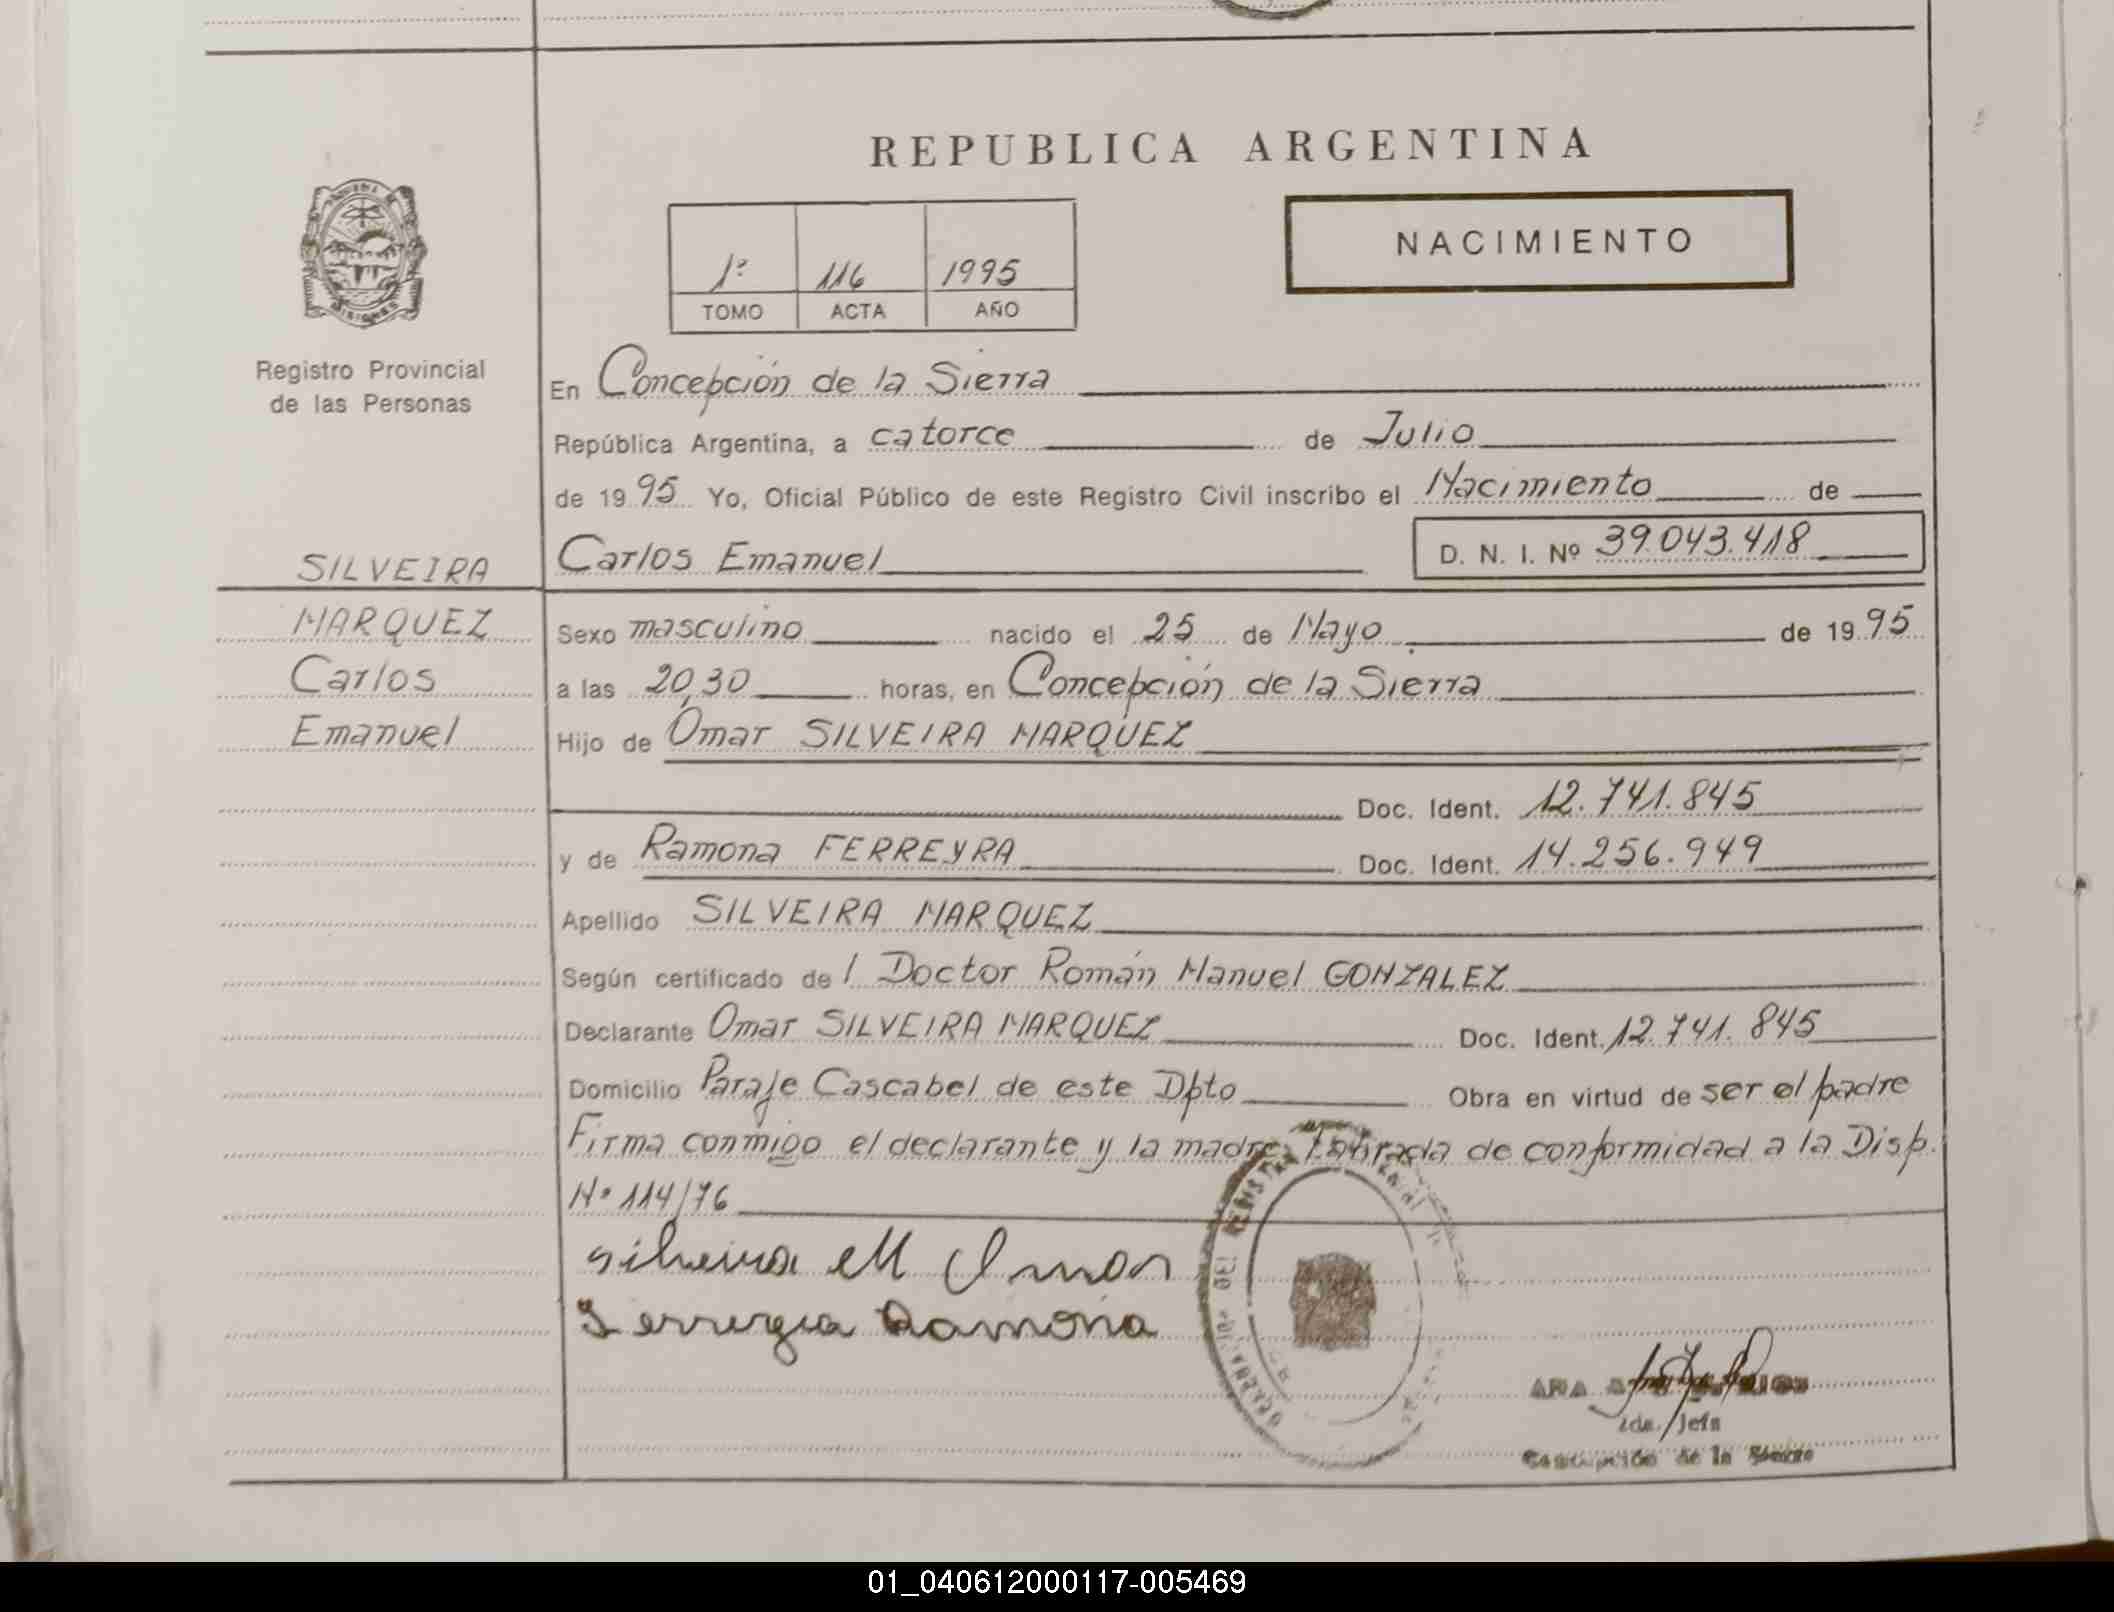 REPUBLICA ARGENTINA
NACIMIENTO
1º 116 1995
TOMO ACTA AÑO
Registro Provincial
de las Personas
En Concepción de la Sierra
República Argentina, a catorce de Julio
de 1995 Yo, Oficial Público de este Registro Civil inscribo el Nacimiento de
Carlos Emanuel D. N. I. Nº 39.043.418
SILVEIRA
MARQUEZ
Carlos
Emanuel
Sexo masculino nacido el 25 de Mayo de 1995
a las 20,30 horas, en Concepción de la Sierra
Hijo de Omar SILVEIRA MARQUEZ
Doc. Ident. 12.741.845
y de Ramona FERREYRA Doc. Ident. 14.256.949
Apellido SILVEIRA MARQUEZ
Según certificado de l Doctor Román Manuel GONZALEZ
Declarante Omar SILVEIRA MARQUEZ Doc. Ident. 12.741.845
Domicilio Paraje Cascabel de este Dpto Obra en virtud de ser el padre
Firma conmigo el declarante y la madre de conformidad a la Disp.
Nº 114/76
Silveira M Omar
Ferreyra Ramona
ANA
2da. Jefa
Concepción de la Sierra
01_040612000117-005469